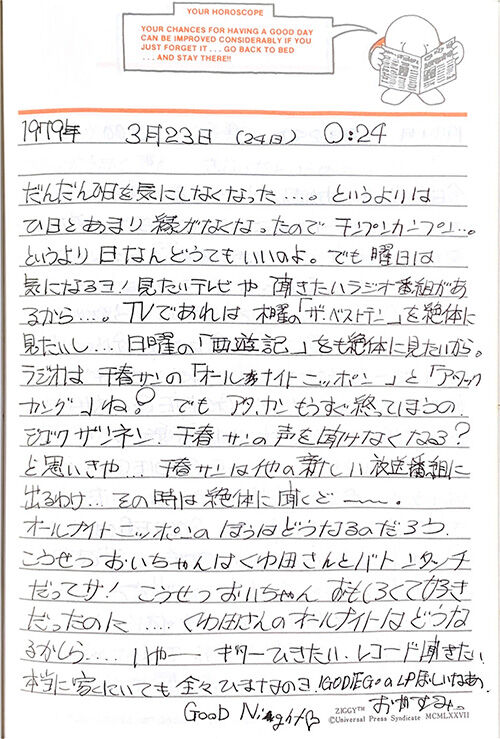 YOUR HOROSCOPE
YOUR CHANCES FOR HAVING A GOOD DAY
CAN BE IMPROVED CONSIDERABLY IF YOU
JUST FORGET IT . . . GO BACK TO BED
. . . AND STAY THERE!!
1979年 3月23日 (24日) 0:24
だんだん日を気にしなくなった…。というよりは
ひ日とあまり縁がなくなったので チンプンカンプン…。
というより 日なんどうでもいいのよ。でも 曜日は
気になるヨ! 見たいテレビや 聞きたいラジオ番組があ
るから…。TVであれば 木曜の「ザ・ベストテン」を絶体に
見たいし… 日曜の「西遊記」をも絶体に見たいから。
ラジオは 千春サンの「オールナイトニッポン」と「アタック
ヤング」ね。でも アタ、ヤン もうすぐ終ってしまうの.
ヒジョウにザンネン. 千春サンの声を聞けなくなる?
と思いきや… 千春サンは他の新しい放送番組に
出るわけ… その時は絶体に聞くど ー〜。
オールナイトニッポンのほうはどうなるのだろう.
こうせつ おいちゃんはくわ田さんとバトンタッチ
だってサ! こうせつおいちゃん おもしろくて好き
だったのに …. くわ田さんのオールナイトはどうな
るかしら…. いやー ギターひきたい. レコード聞きたい.
本当に家にいても 全々ひまなのヨ. !GODIEGOのLPほしいなあ.
Good Night おやすみ。
ZIGGY™
©Universal Press Syndicate MCMLXXVII